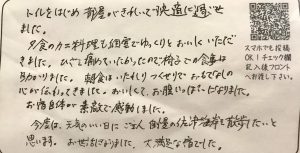 トイレをはじめ部屋がきれいで快適に過ごせ
ました。
夕食のカニ料理も個室でゆっくりとおいしくいただき
ました。ひざを痛めていたがたのでイス席での食事は
ありがたかったです。朝食はいたれりつくせりでおもてなしの
心が伝わってきました。おいしくて、お腹いっぱいになりました。
お宿自体が素敵で感動しました。
今度は、元気のいい日に ご主人自慢の佐津海岸を散歩したいと
思います。お世話になりました。大満足な宿でした。
スマホでも投稿
OK!チェック欄
記入後フロント
へお渡し下さい。